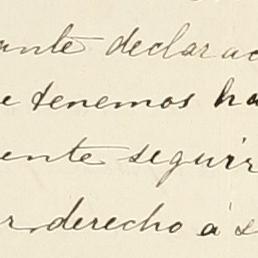 ante declarac
e tenemos ha
ente seguir
r derecho á s